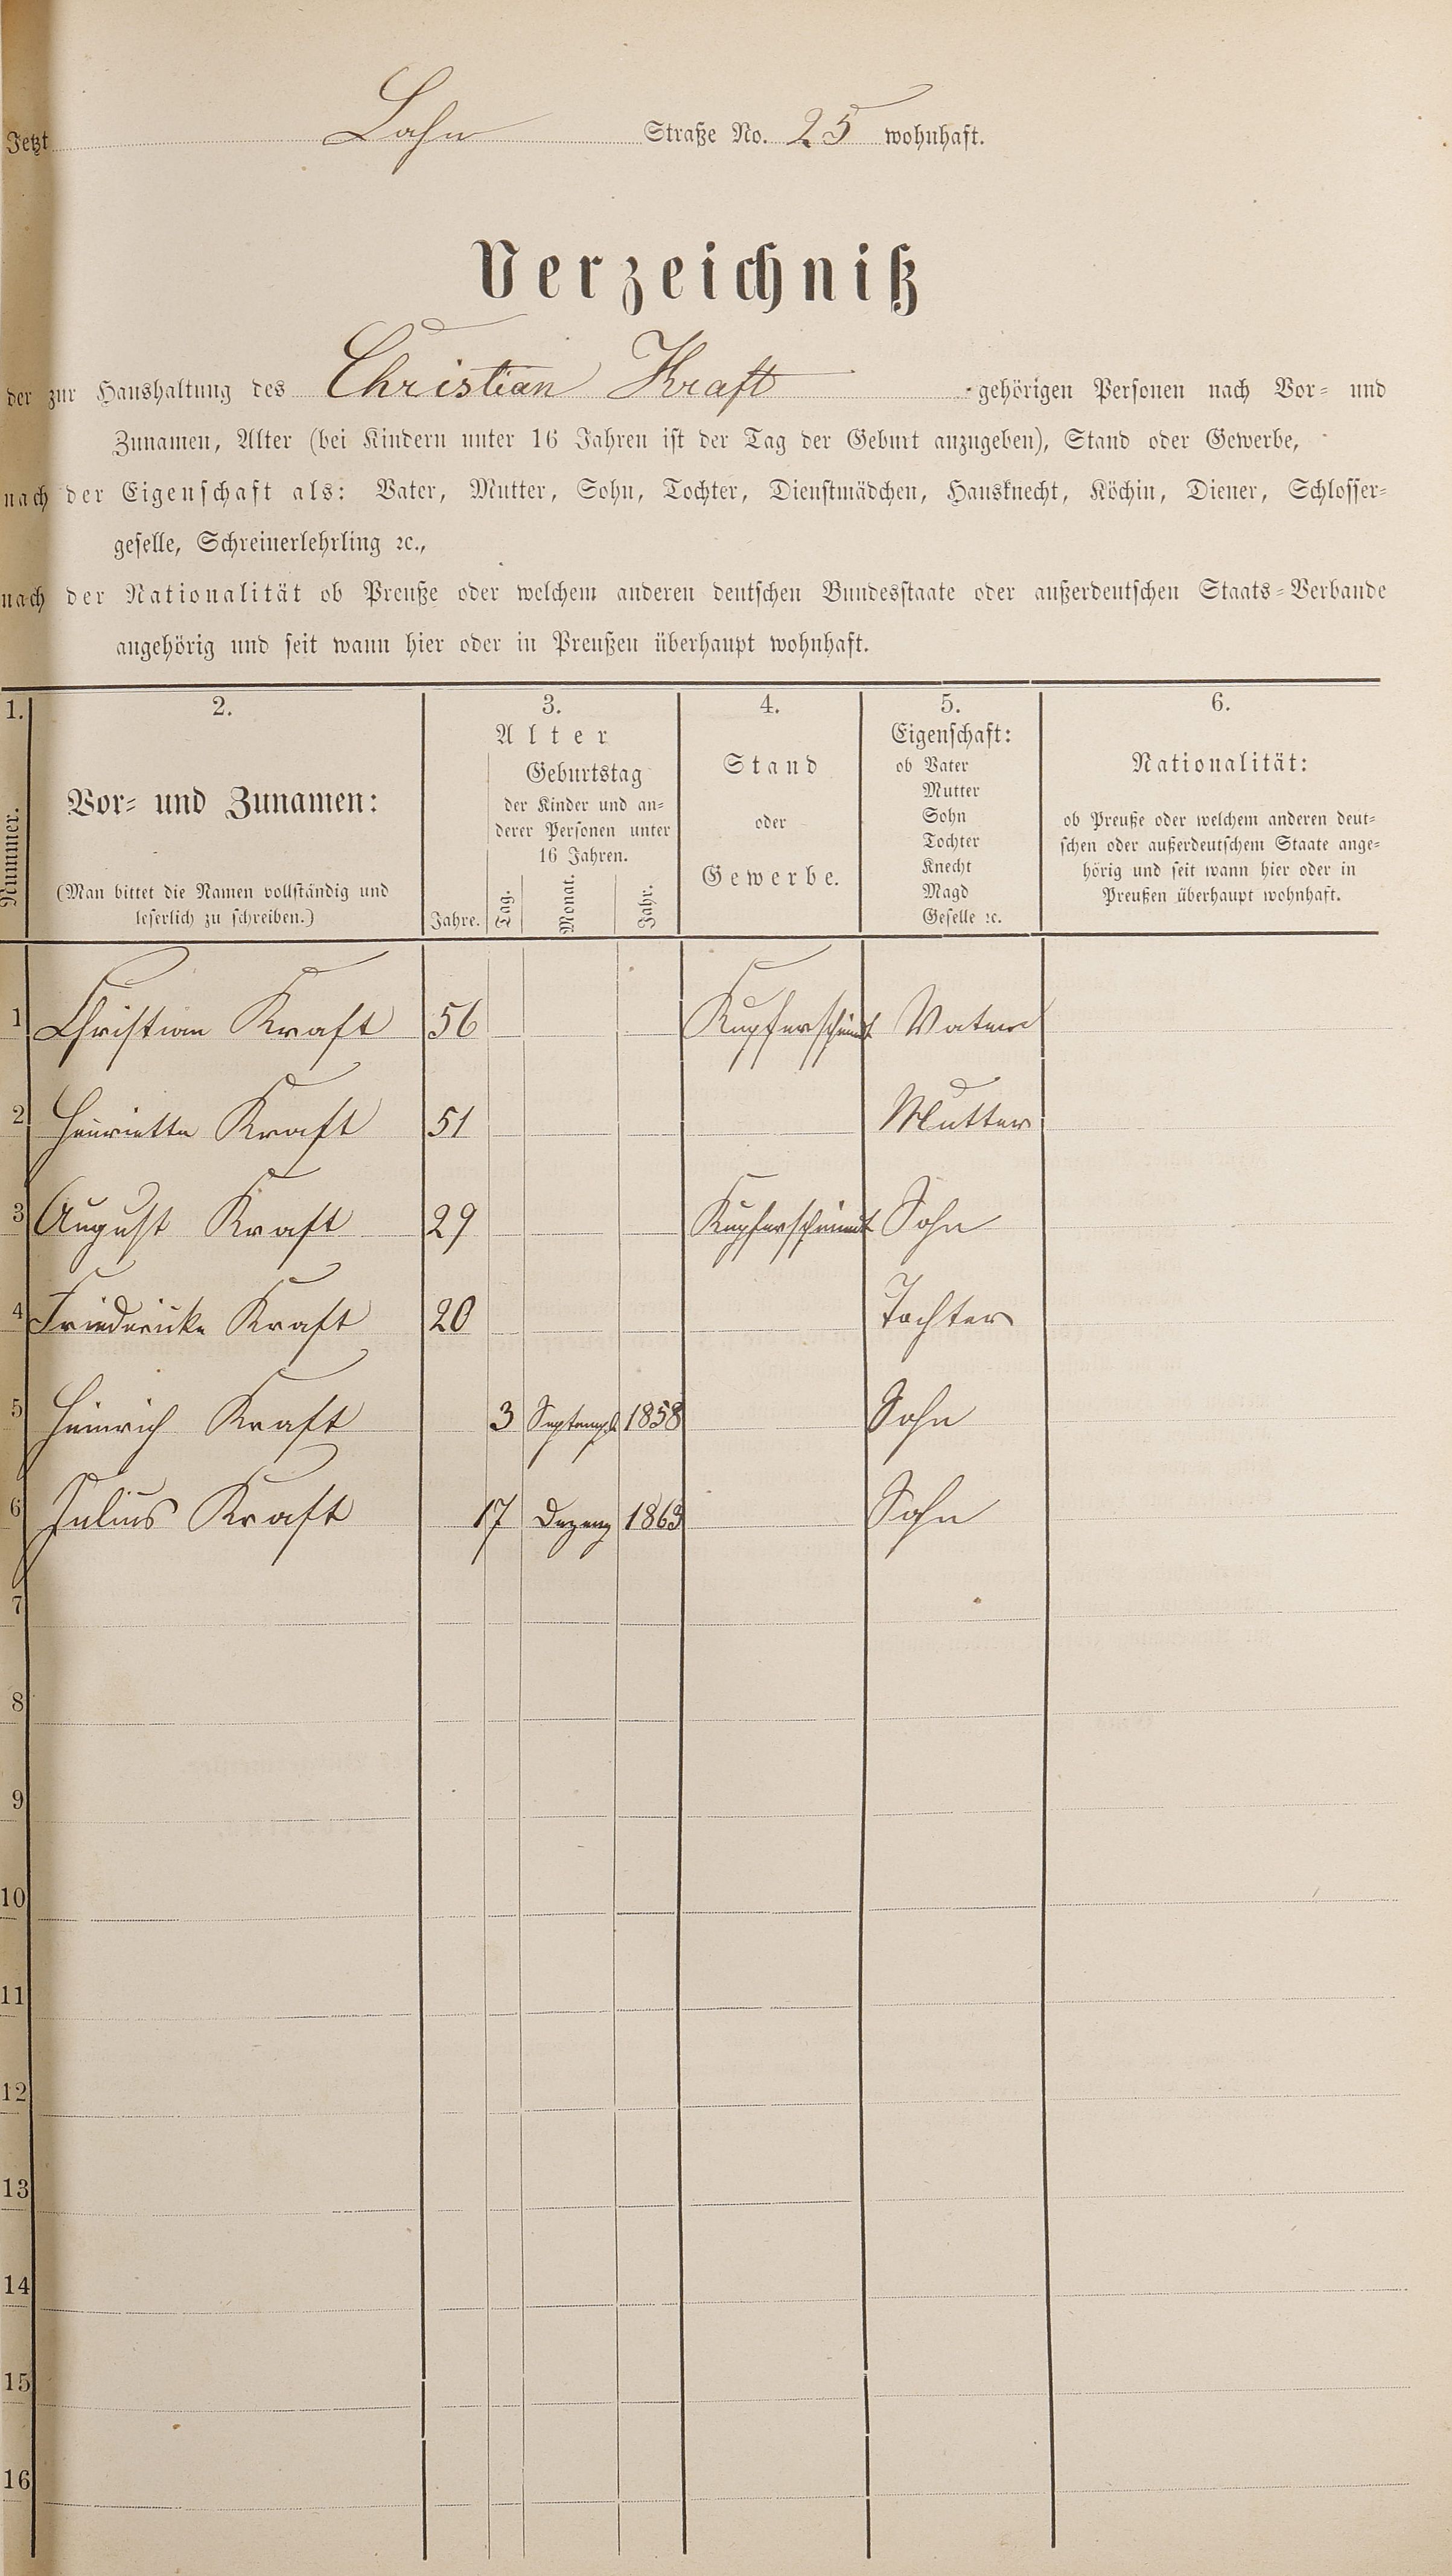 Jetzt Lahn Straße No. 25 wohnhaft.
Verzeichniß
der zur Haushaltung des Christian Kraft gehörigen Personen nach Vor- und
Zunamen, Alter (bei Kindern unter 16 Jahren ist der Tag der Geburt anzugeben), Stand oder Gewerbe,
nach der Eigenschaft als: Vater, Mutter, Sohn, Tochter, Dienstmädchen, Hausknecht, Köchin, Diener, Schlosser-
geselle, Schreinerlehrling ꝛc.,
nach der Nationalität ob Preuße oder welchem anderen deutschen Bundesstaate oder außerdeutschen Staats-Verbande
angehörig und seit wann hier oder in Preußen überhaupt wohnhaft.
1. 2. 3. 4. 5. 6.
Nummer.
Vor- und Zunamen:
(Man bittet die Namen vollständig und
leserlich zu schreiben.)
Alter
Jahre.
Geburtstag
der Kinder und an-
derer Personen unter
16 Jahren.
Tag. Monat. Jahr.
Stand
oder
Gewerbe.
Eigenschaft:
ob Vater
Mutter
Sohn
Tochter
Knecht
Magd
Geselle ꝛc.
Nationalität:
ob Preuße oder welchem anderen deut-
schen oder außerdeutschem Staate ange-
hörig und seit wann hier oder in
Preußen überhaupt wohnhaft.
1 Christian Kraft 56 Kupferschmidt Vater
2 Henriette Kraft 51 Mutter
3 August Kraft 29 Kupferschmidt Sohn
4 Friedericke Kraft 20 Tochter
5 Heinrich Kraft 3 Septemb 1858 Sohn
6 Julius Kraft 17 Dezem 1863 Sohn
7
8
9
10
11
12
13
14
15
16